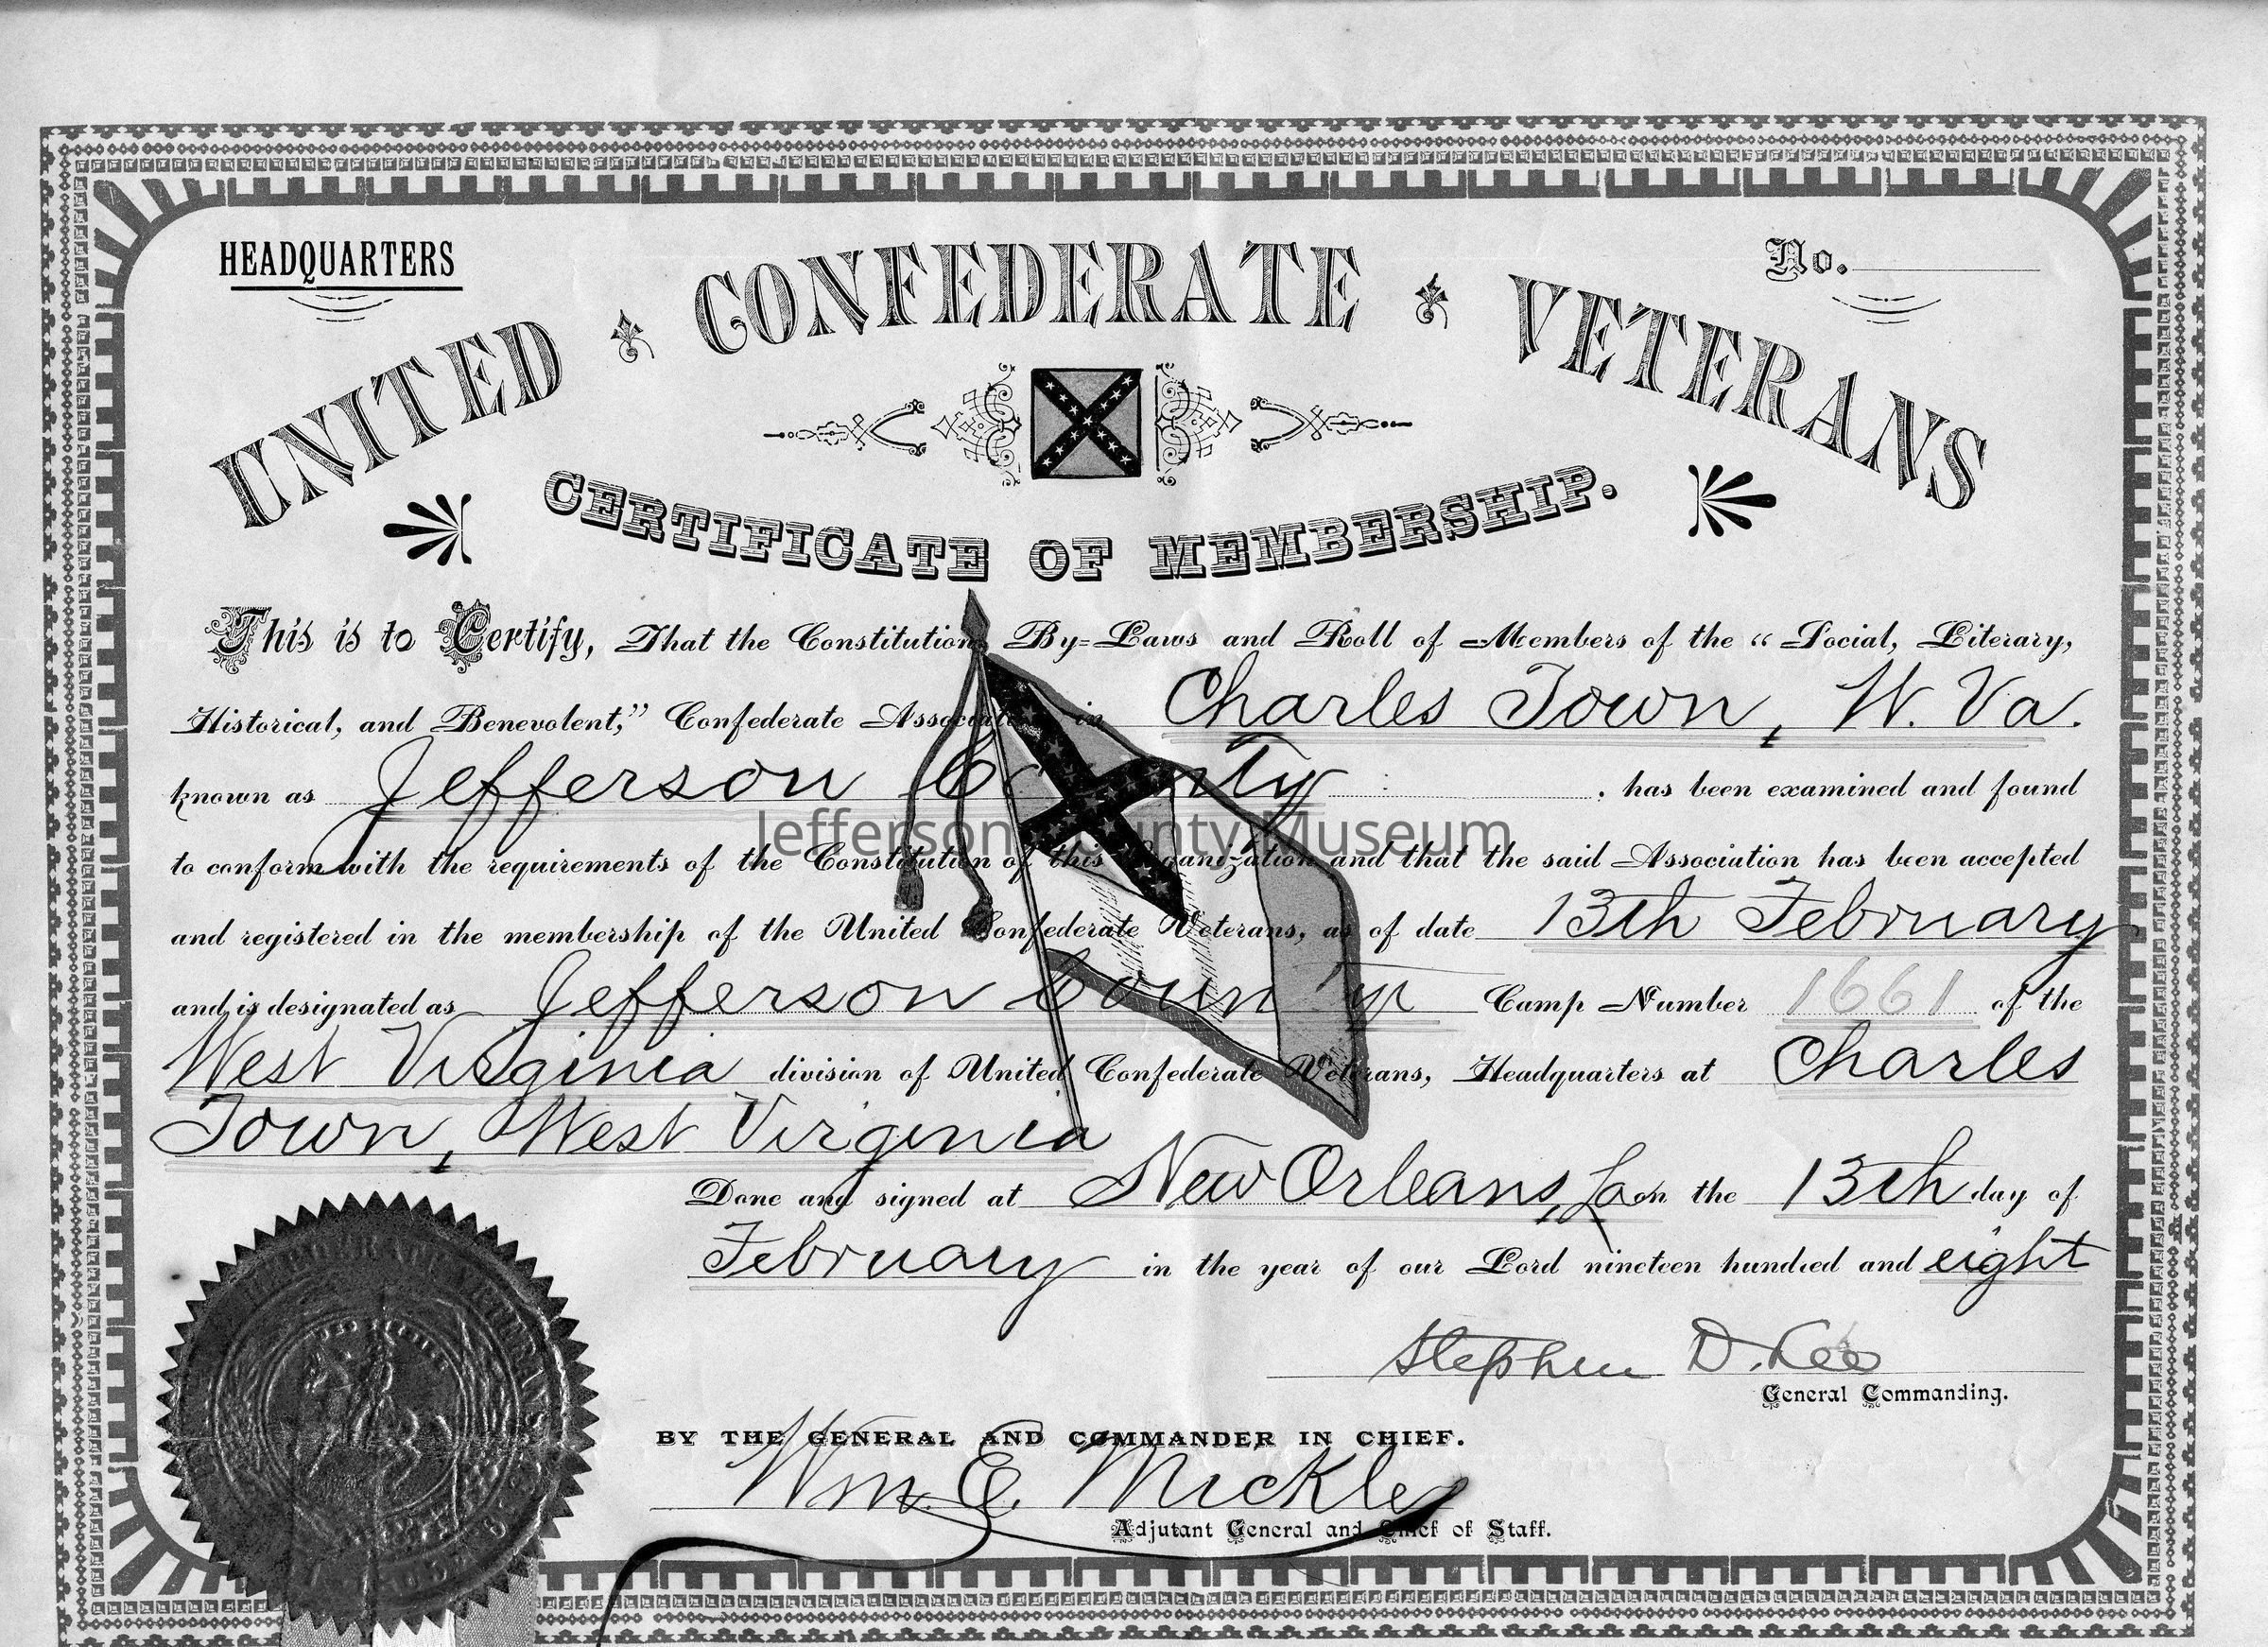 HEADQUARTERS
No.
UNITED CONFEDERATE VETERANS
CERTIFICATE OF MEMBERSHIP.
This is to Certify, That the Constitution, By-Laws and Roll of Members of the “Social, Literary,
Historical, and Benevolent,” Confederate Association in Charles Town, W. Va.
known as Jefferson County , has been examined and found
Jefferson County Museum
to conform with the requirements of the Constitution of this Organization and that the said Association has been accepted
and registered in the membership of the United Confederate Veterans, as of date 13th February
and is designated as Jefferson County Camp Number 1661 of the
West Virginia division of United Confederate Veterans, Headquarters at Charles
Town, West Virginia
Done and signed at New Orleans, La on the 13th day of
February in the year of our Lord nineteen hundred and eight
Stephen D. Lee
General Commanding.
BY THE GENERAL AND COMMANDER IN CHIEF.
Wm. E. Mickle
Adjutant General and Chief of Staff.